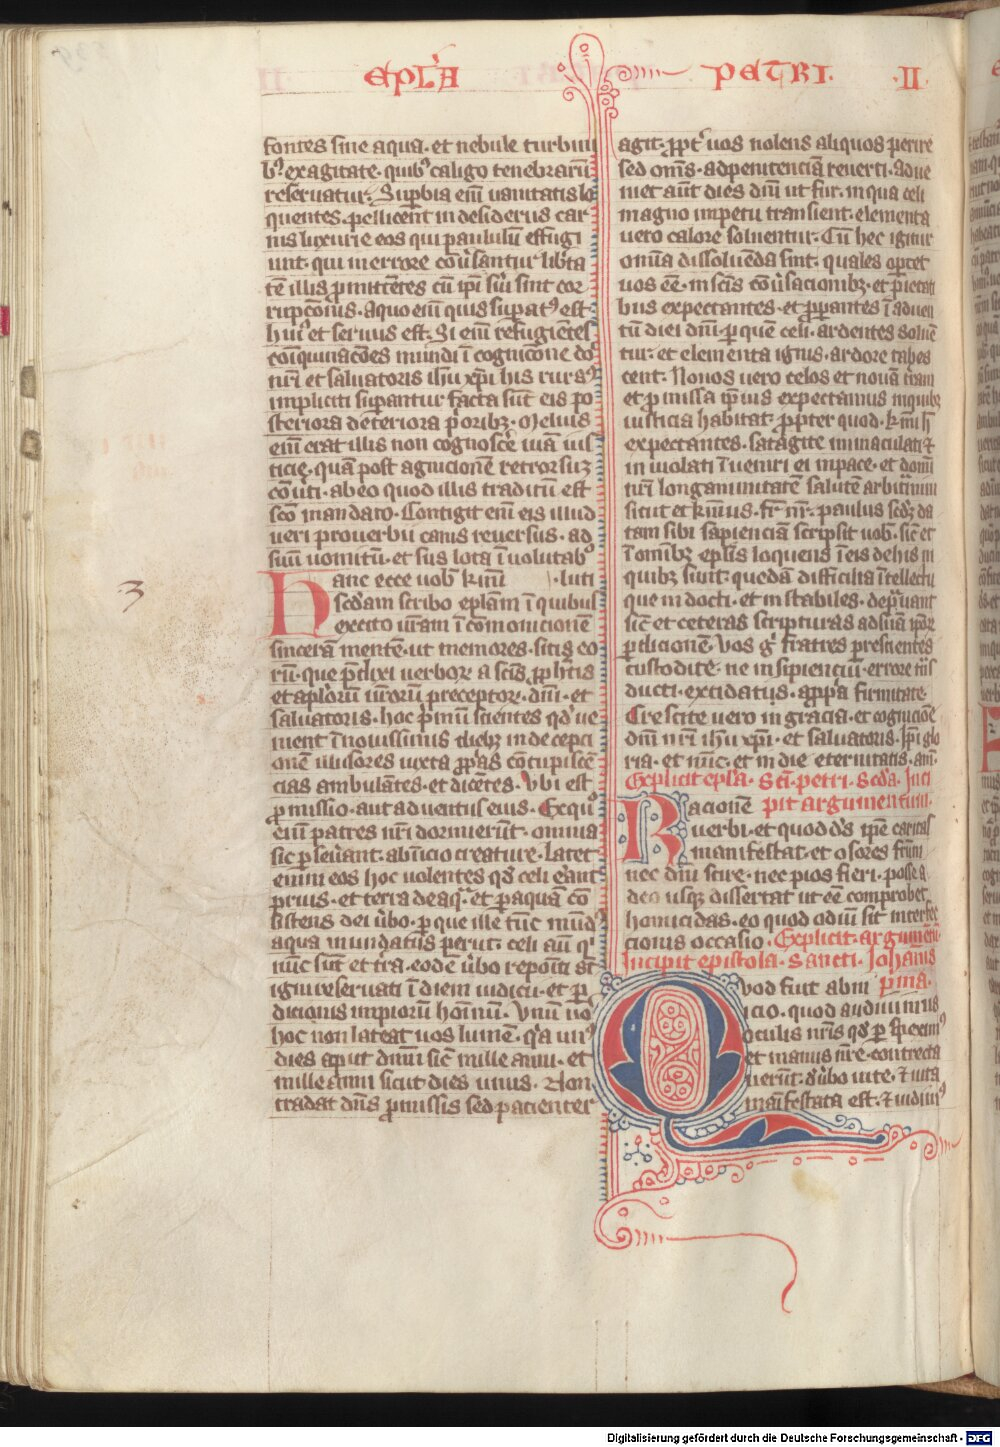 EPL'A PETRI. II
fontes sine aqua. et nebule turbini
b9 exagitate. quib9 caligo tenebrarū
reseruatur. Supbia eni uanitatis lo
quentes. pellicent in desideriis car
nis luxurie eos qui paululū effugi
unt. qui in errore cōusantur libta
tē illis pmittētes cū ipi sui sint cor
rupcōnis. A quo eni quis supat9 est.
hui9 et seruus est. Si eni refugiētes
coinquinacōes mundi ī cognicōne dō
nri et saluatoris ihu xpi his rurs9
impliciti supantur facta sūt eis po
steriora deteriora poribz. Melius
eni erat illis non cognoscē uiā ius
ticie. quā post agnicionē retrorsuz
cōuti. ab eo quod illis traditū est
sco mandato. Contigit eni eis illud
ueri prouerbii canis reuersus. ad
suū uomitū. et sus lota ī uolutab
Hanc ecce uob kmi luti
scdam scribo eplam ī quibus
excito uram ī cōmonicionē
sincerā mentē. ut memores. sitis eo
rū. que pdixi uerbor a scis pphetis
et aplorū urorū preceptor. dni. et
saluatoris. hoc pmū scientes qd ue
nient ī nouissimis diebz in decepci
onē illusores iuxta ppas cōcupiscē
cias ambulātes. et dicētes. Vbi est
pmissio. aut aduentus eius. Ex quo
eni patres nri dormierūt. omnia
sic pseuant. ab inicio creature. Latet
enim eos hoc uolentes qd celi erāt
prius. et terra de aqua et p aquā cō
sistens dei ubo. p que ille tūc mūd9
aqua inundatus periit. celi aut q
nūc sūt et tra. eodē ubo repositi st
igni reseruati ī diem iudicii. et p
dicionis impiorum homnū. Vnū uo
hoc non lateat uos kmi. qa un9
dies aput dnm sic mille anni. et
mille anni sicut dies unus. Non
tradat dns pmissis sed pacienter
agit. ppt uos nolens aliquos perire
sed oms. ad penitenciā reuerti. adue
niet aut dies dni ut fur. in qua celi
magno impetu transient. elementa
uero calore soluentur. Cū hec igitur
omnia dissoluēda sint. quales oportet
uos eē. in scis cōusacionibz. et pietati
bus expectantes. et pperantes ī aduen
tū diei dni. p quē celi. ardentes soluē
tur. et elementa ignis. ardore tabes
cent. Nouos uero celos et nouā tram
et pmissa ipius expectamus in quibz
iusticia habitat. propter quod. kmi h
expectantes. satagite inmaculati et
inuiolati ī ueniri ei in pace. et domi
nri longanimitatē salutē arbitramini
sicut et kmus. fr nr. paulus scdz da
tam sibi sapienciā scripsit uob. sic et
ī omibz eplis loquens ī eis de his in
quibz sunt. quedā difficilia ītellectu
que indocti. et instabiles. deprauant
sic et ceteras scripturas ad suā ipor
pdicionē. Vos g fratres prescientes
custodite. ne insipienciū. errore tris
ducti. excidatis. a ppa firmitate.
Crescite uero in gracia. et cognicōe
dni nri ihu xpi. et saluatoris. Ipi glo
ria. et nunc. et in die eternitatis. am.
Explicit epla. Sci. petri. scda. Inci
Racionē pit argumentum.
uerbi. et quod ds ipe caritas
manifestat. et osores frum
nec dm scire. nec pios fieri. posse a
deo usqz dissertat ut eē comprobet
homicidas. eo quod odiū sit interfec
cionis occasio. Explicit. argumētū.
Incipit epistola. Sancti. Johannis
Quod fuit ab ini pma.
icio. quod audiuimus
oculis nris qd pspexim9
et manus nre. contrecta
uerūt. d ubo uite. et uita
mai festata est. et uidim9
3
Digitalisierung gefördert durch die Deutsche Forschungsgemeinschaft - DFG